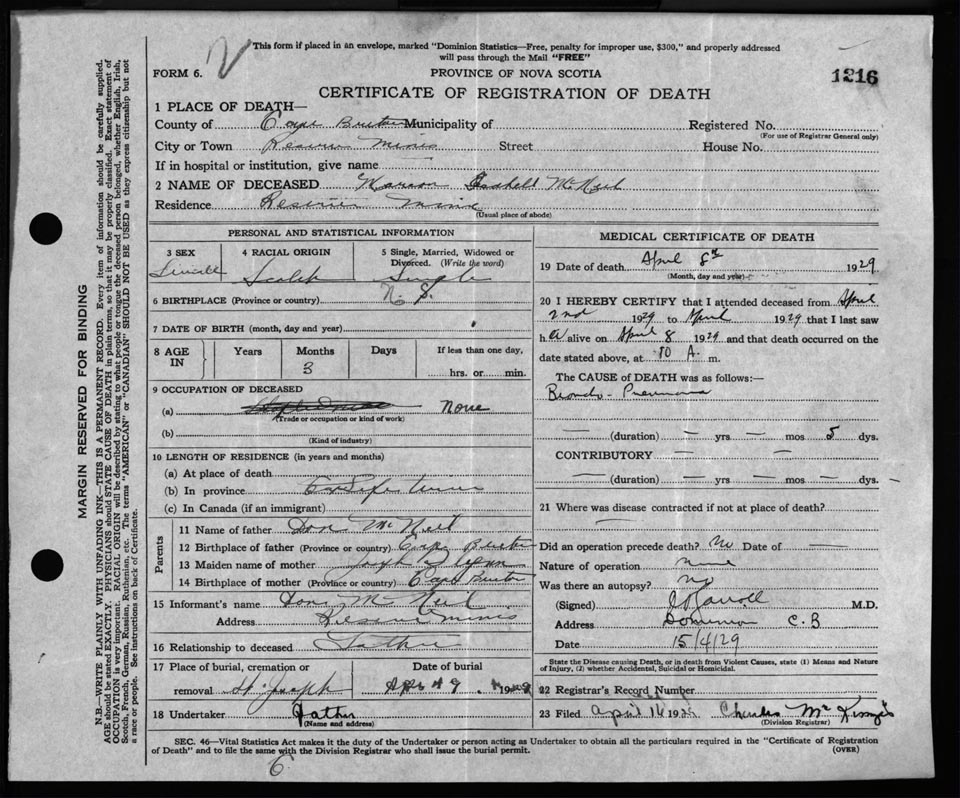 This form if placed in an envelope, marked "Dominion Statistics—Free, penalty for improper use, $300," and properly addressed
will pass through the Mail "FREE"
FORM 6.
PROVINCE OF NOVA SCOTIA
1216
CERTIFICATE OF REGISTRATION OF DEATH
1 PLACE OF DEATH—
County of Cape Breton Municipality of Registered No.
(For use of Registrar General only)
City or Town Reserve Mines Street House No.
If in hospital or institution, give name
2 NAME OF DECEASED McNeil
Residence Reserve Mines
(Usual place of abode)
PERSONAL AND STATISTICAL INFORMATION
3 SEX 4 RACIAL ORIGIN 5 Single, Married, Widowed or Divorced. (Write the word)
Female Scotch Single
6 BIRTHPLACE (Province or country) N. S.
7 DATE OF BIRTH (month, day and year)
8 AGE IN Years Months Days If less than one day,
3 hrs. or min.
9 OCCUPATION OF DECEASED
(a) None
(Trade or occupation or kind of work)
(b)
(Kind of industry)
10 LENGTH OF RESIDENCE (in years and months)
(a) At place of death
(b) In province
(c) In Canada (if an immigrant)
Parents
11 Name of father Don McNeil
12 Birthplace of father (Province or country) Cape Breton
13 Maiden name of mother
14 Birthplace of mother (Province or country) Cape Breton
15 Informant's name Don McNeil
Address Reserve Mines
16 Relationship to deceased Father
17 Place of burial, cremation or Date of burial
removal St. Joseph Apr 9 1929
18 Undertaker Father
(Name and address)
MEDICAL CERTIFICATE OF DEATH
19 Date of death April 8th 1929
(Month, day and year)
20 I HEREBY CERTIFY that I attended deceased from April
2nd 1929 to April 1929 that I last saw
h alive on April 8 1929 and that death occurred on the
date stated above, at 10 A. m.
The CAUSE of DEATH was as follows:—
Broncho-Pneumonia
— (duration) — yrs — mos 5 dys.
CONTRIBUTORY — —
— (duration) — yrs — mos — dys.
21 Where was disease contracted if not at place of death?
—
Did an operation precede death? No Date of —
Nature of operation none
Was there an autopsy? No
(Signed) M.D.
Address Dominion C.B
Date 15/4/29
State the Disease causing Death, or in death from Violent Causes, state (1) Means and Nature
of Injury, (2) whether Accidental, Suicidal or Homicidal.
22 Registrar's Record Number
23 Filed April 16 1929 Charles
(Division Registrar)
SEC. 46—Vital Statistics Act makes it the duty of the Undertaker or person acting as Undertaker to obtain all the particulars required in the "Certificate of Registration
of Death" and to file the same with the Division Registrar who shall issue the burial permit.
(OVER)
6
MARGIN RESERVED FOR BINDING
N.B.—WRITE PLAINLY WITH UNFADING INK—THIS IS A PERMANENT RECORD. Every item of information should be carefully supplied.
AGE should be stated EXACTLY. PHYSICIANS should STATE CAUSE OF DEATH in plain terms, so that it may be properly classified. Exact statement of
OCCUPATION is very important. RACIAL ORIGIN will be described by stating to what people or tongue the deceased person belonged, whether English, Irish,
Scotch, French, German, Russian, Ruthenian, etc. The terms "AMERICAN" or "CANADIAN" SHOULD NOT BE USED as they express citizenship but not
a race or people. See instructions on back of Certificate.